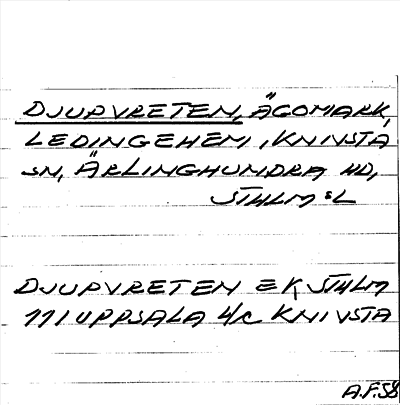 DJUPVRETEN, ÄGOMARK,
LEDINGEHEM, KNIVSTA
SN, ÄRLINGHUNDRA HD,
STHLM:SL
DJUPVRETEN EK, STHLM
111 UPPSALA 4/c KNIVSTA
A.F. 58